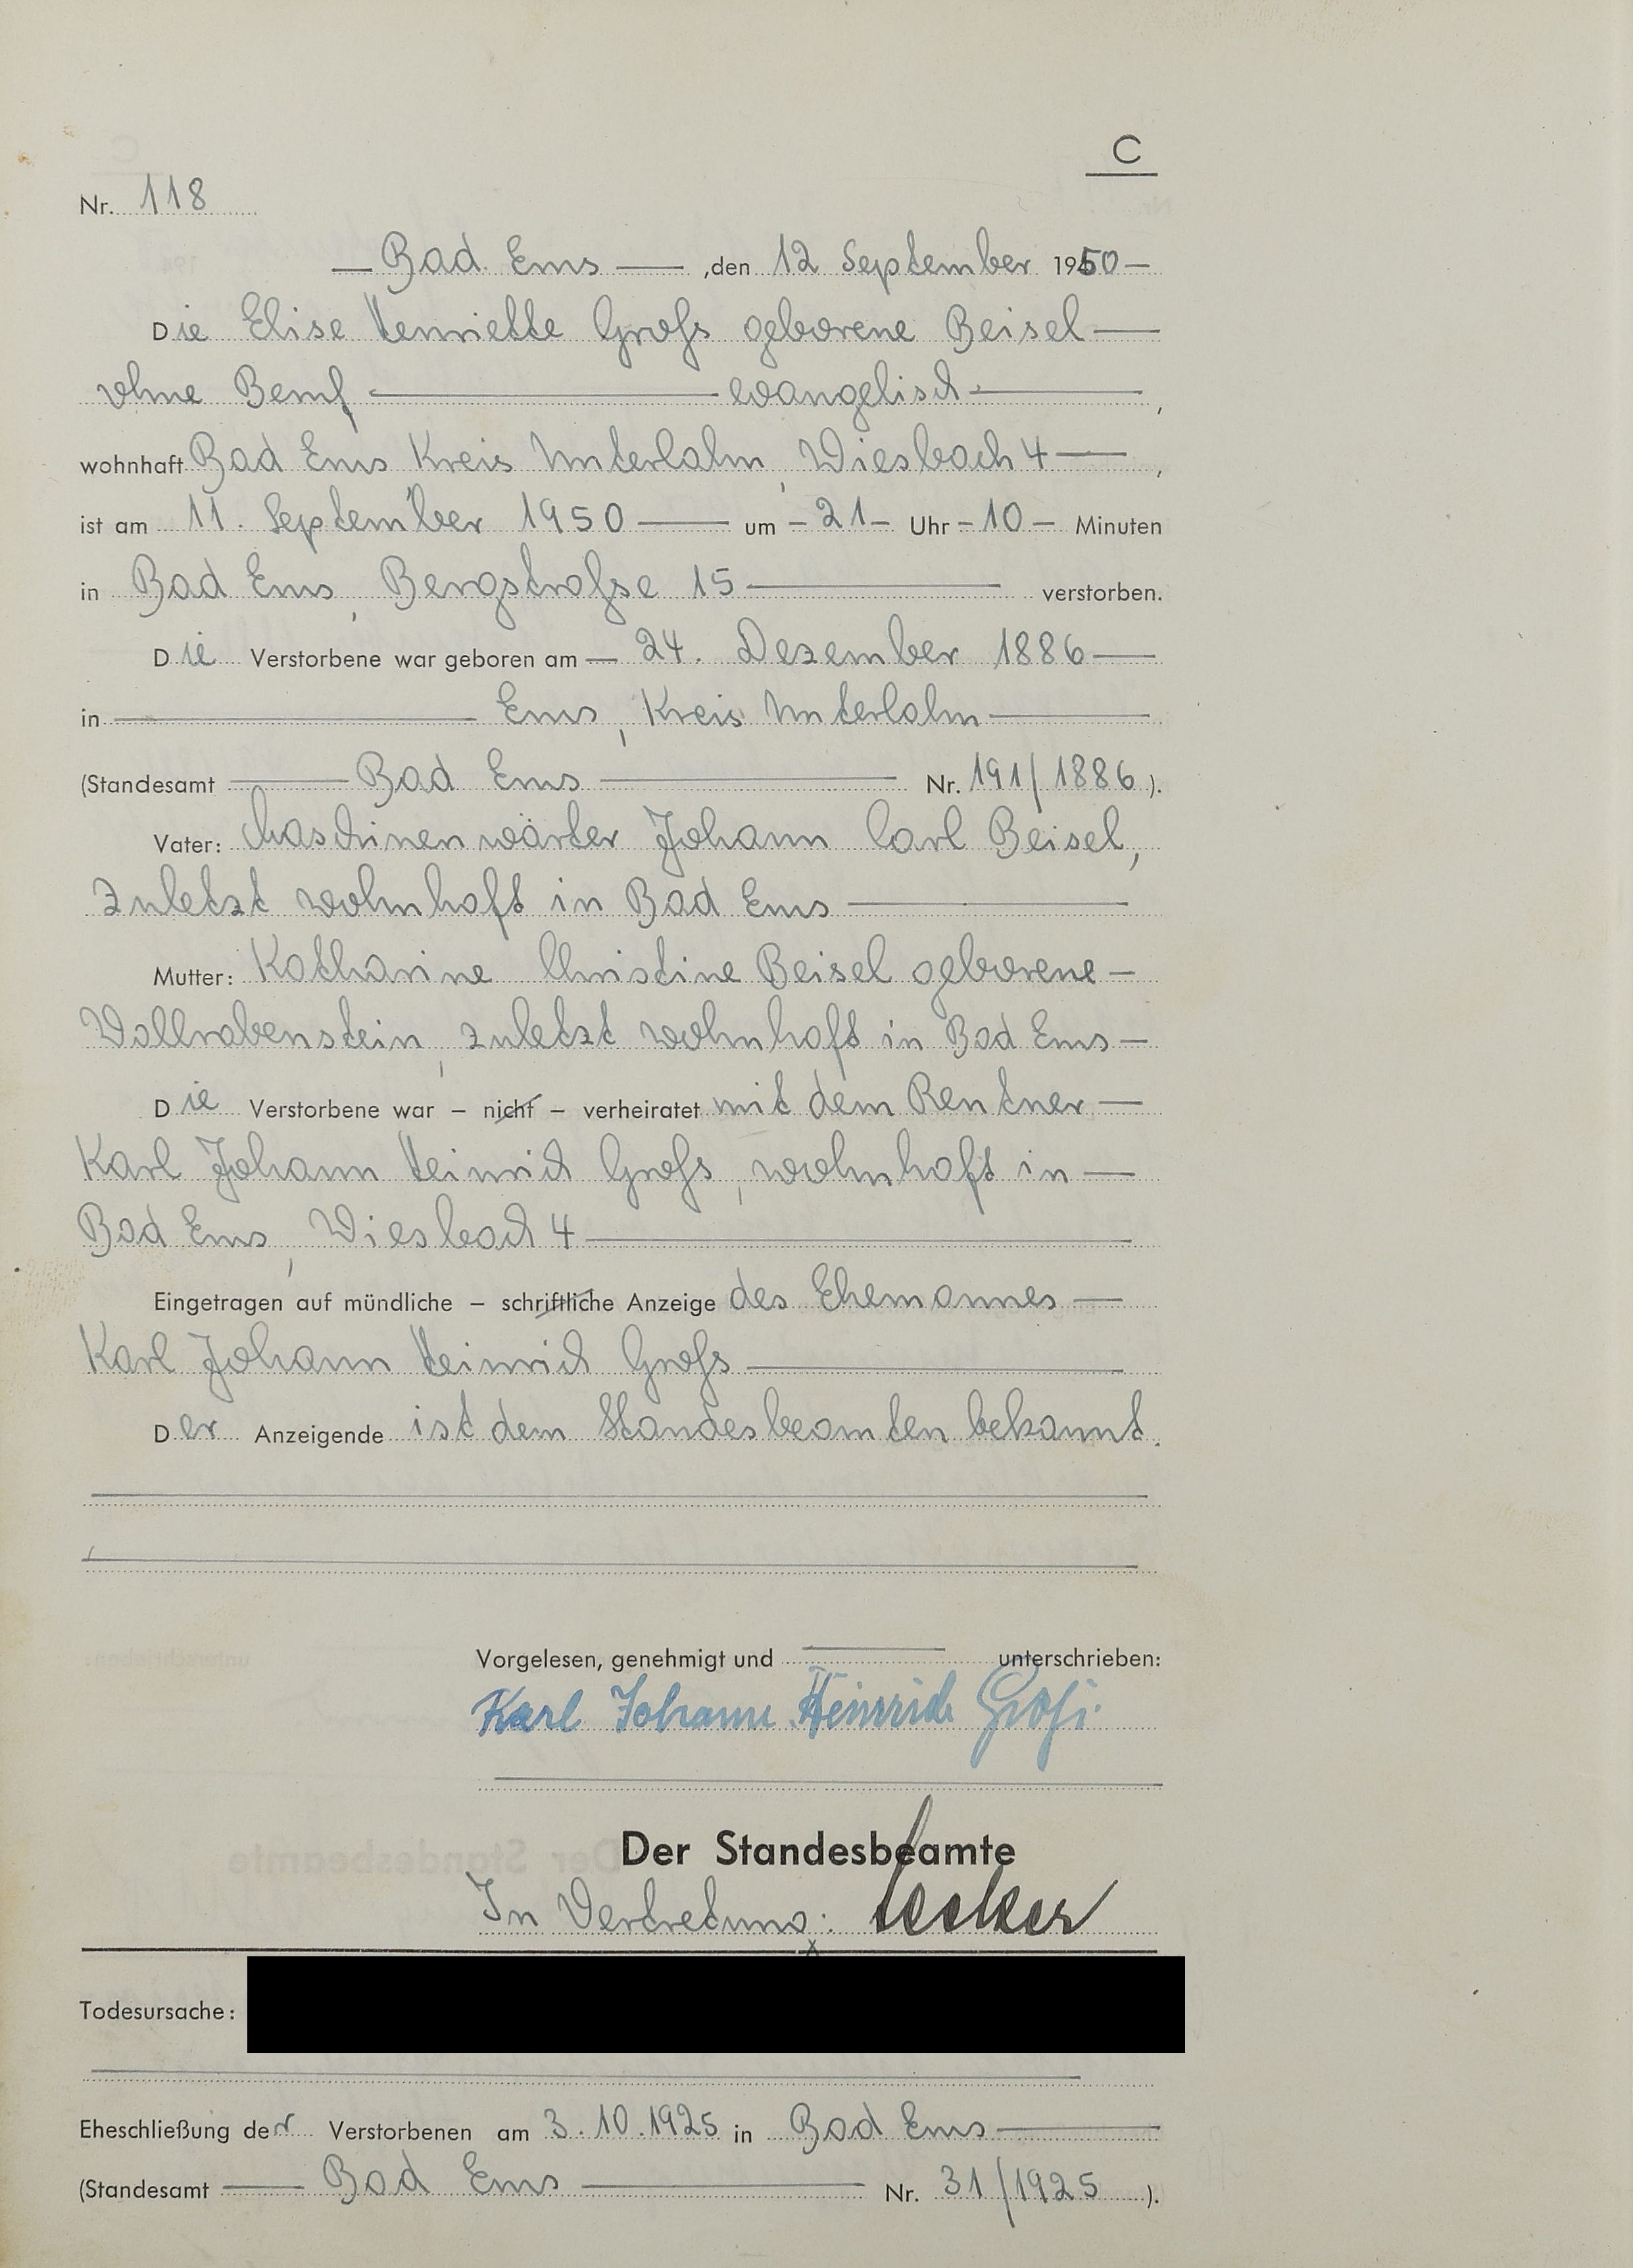 C
Nr. 118
— Bad Ems — , den 12 September 1950 —
Die Elise Henriette Groß geborene Beisel —
ohne Beruf — evangelisch — ,
wohnhaft Bad Ems Kreis Unterlahn, Wiesbach 4 — ,
ist am 11. September 1950 — um – 21 – Uhr – 10 – Minuten
in Bad Ems, Bergstraße 15 — verstorben.
Die Verstorbene war geboren am — 24. Dezember 1886 —
in — Ems, Kreis Unterlahn —
(Standesamt — Bad Ems — Nr. 191/1886).
Vater: Maschinenwärter Johann Carl Beisel,
zuletzt wohnhaft in Bad Ems —
Mutter: Katharine Christine Beisel geborene —
Vollrabenstein, zuletzt wohnhaft in Bad Ems —
Die Verstorbene war – nicht – verheiratet mit dem Rentner —
Karl Johann Heinrich Groß, wohnhaft in —
Bad Ems, Wiesbach 4 —
Eingetragen auf mündliche – schriftliche Anzeige des Ehemannes —
Karl Johann Heinrich Groß —
Der Anzeigende ist dem Standesbeamten bekannt.
Vorgelesen, genehmigt und — unterschrieben:
Karl Johann Heinrich Groß.
Der Standesbeamte
In Vertretung:
Todesursache:
Eheschließung der Verstorbenen am 3.10.1925 in Bad Ems —
(Standesamt — Bad Ems — Nr. 31/1925).